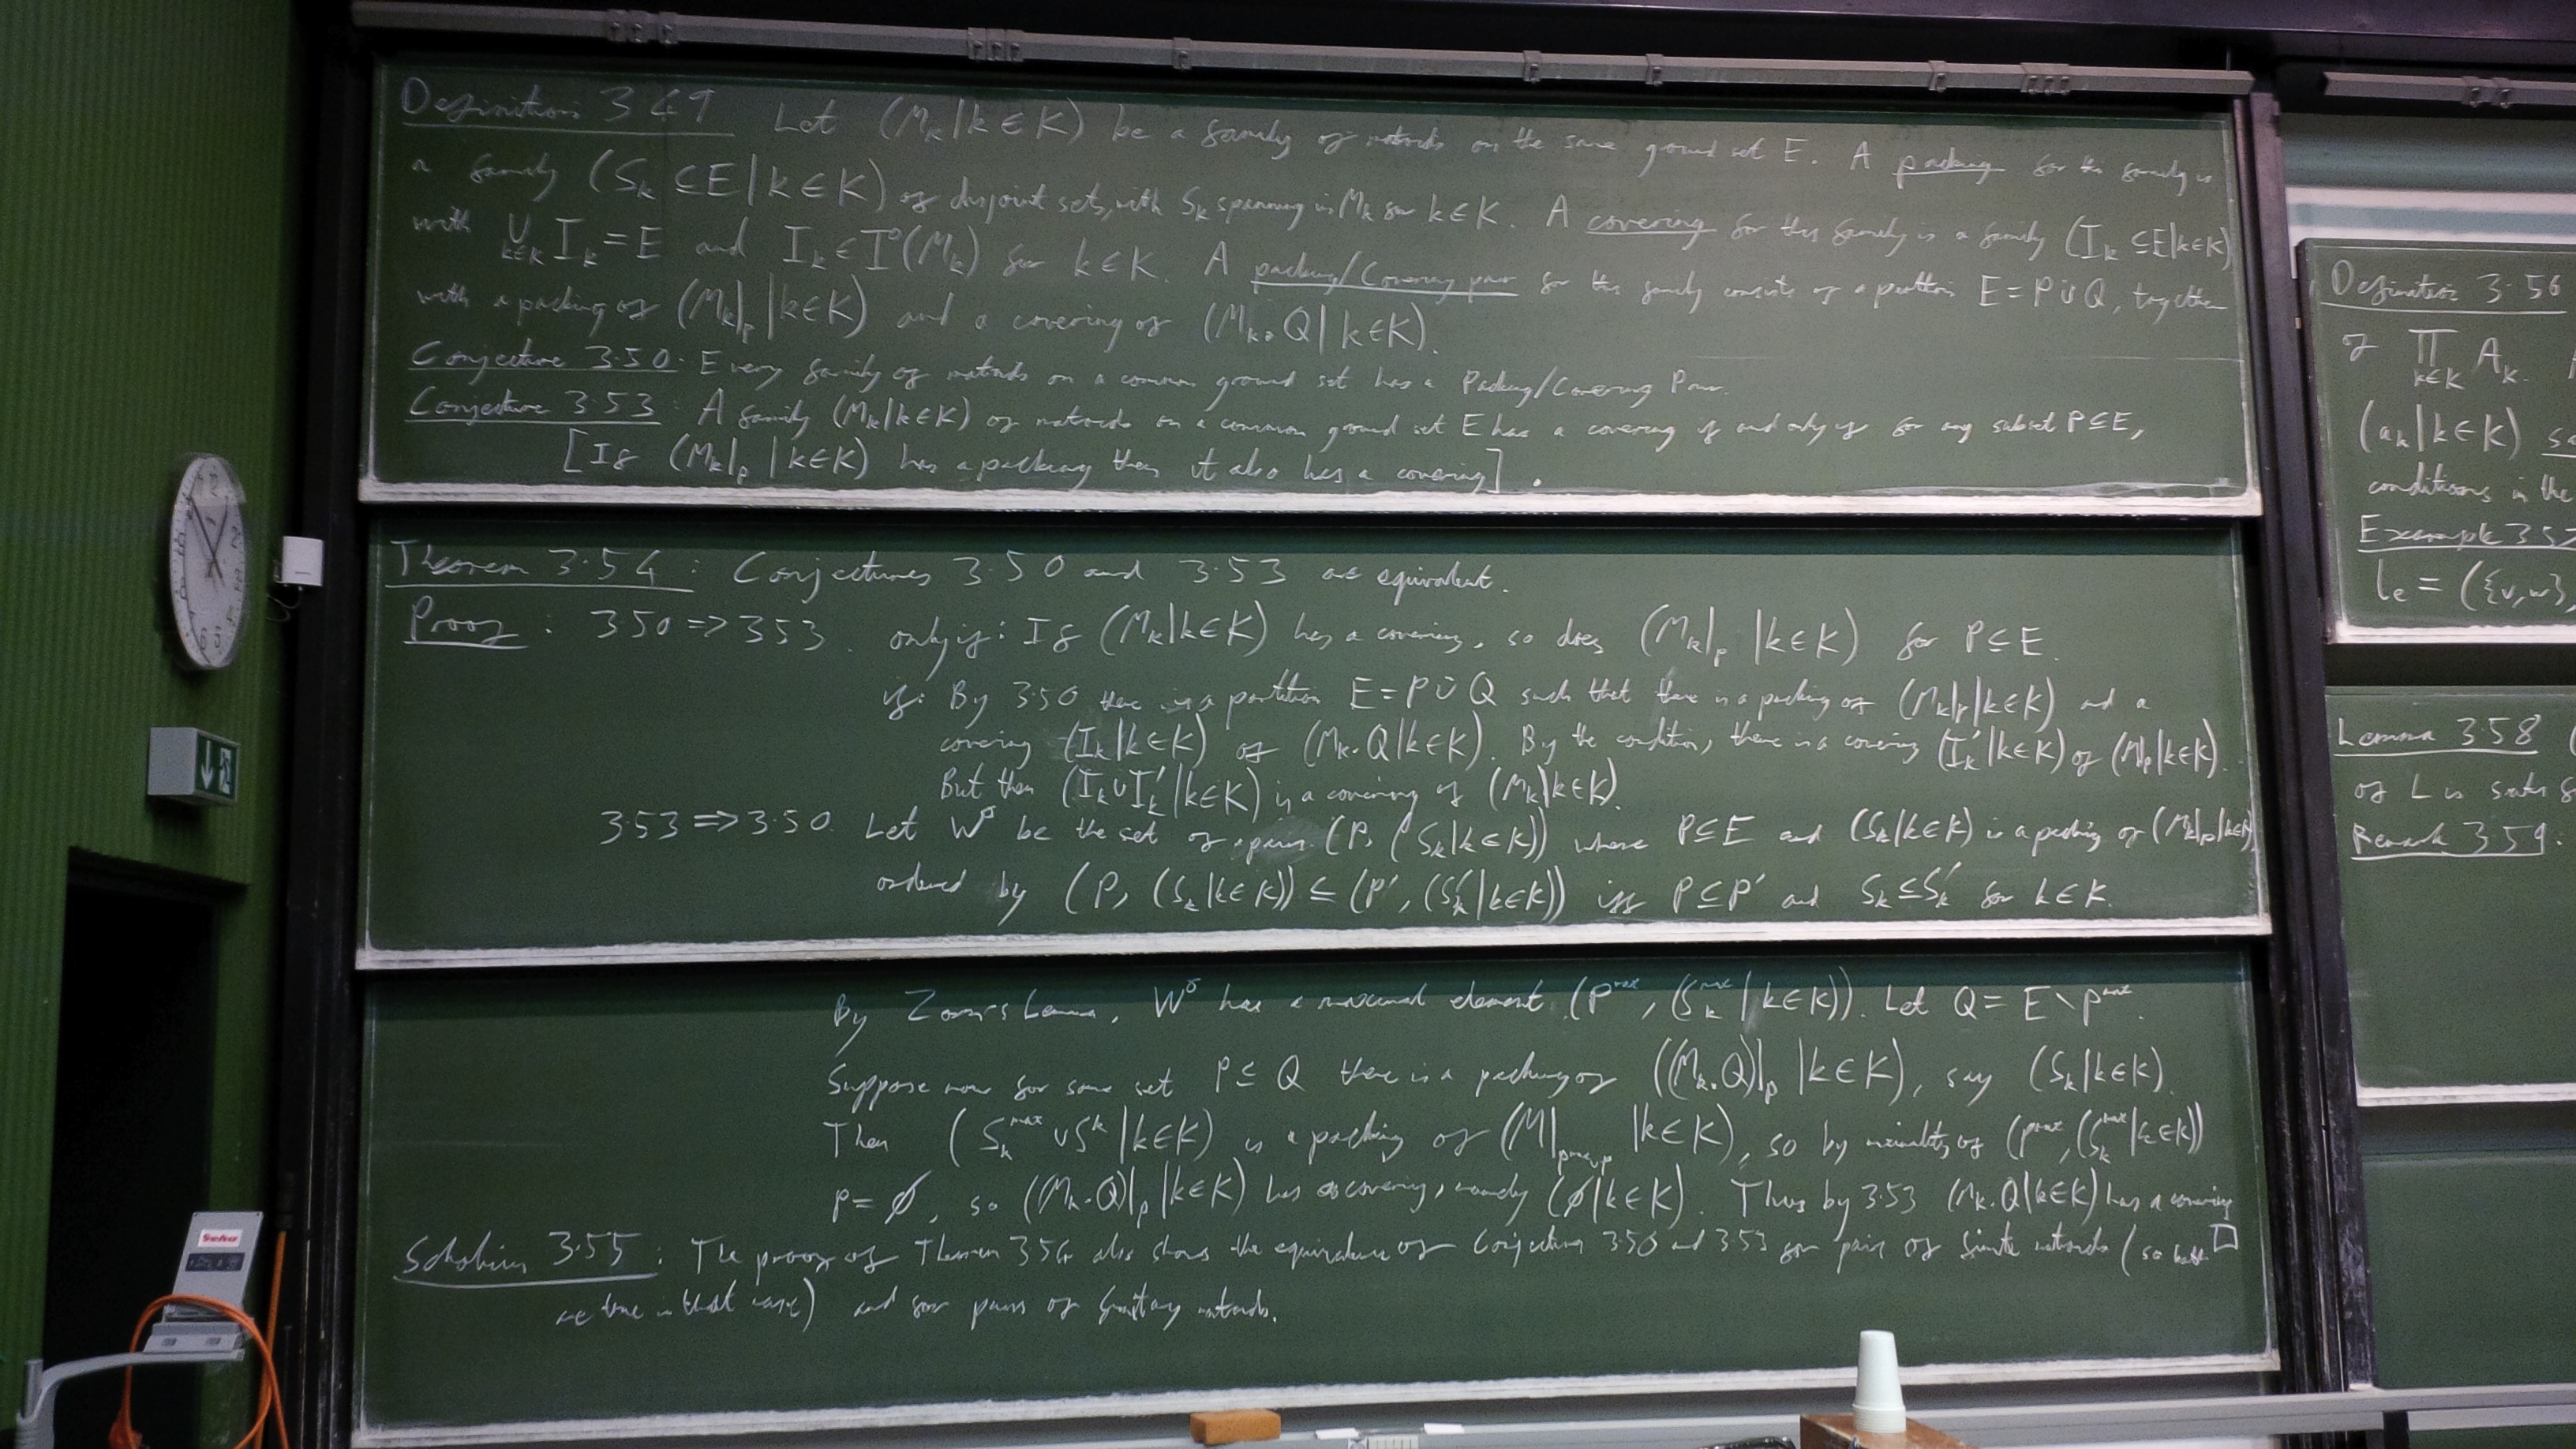 Definition 3.49 Let (M_k | k ∈ K) be a family of matroids on the same ground set E. A packing for this family is
a family (S_k ⊆ E | k ∈ K) of disjoint sets, with S_k spanning in M_k for k ∈ K. A covering for this family is a family (I_k ⊆ E | k ∈ K)
with ⋃_{k∈K} I_k = E and I_k ∈ I°(M_k) for k ∈ K. A packing/Covering pair for this family consists of a partition E = P ∪̇ Q, together
with a packing of (M_k|_P | k ∈ K) and a covering of (M_k.Q | k ∈ K).
Conjecture 3.50: Every family of matroids on a common ground set has a Packing/Covering Pair.
Conjecture 3.53: A family (M_k | k ∈ K) of matroids on a common ground set E has a covering if and only if for any subset P ⊆ E,
[If (M_k|_P | k ∈ K) has a packing then it also has a covering].
Theorem 3.54: Conjectures 3.50 and 3.53 are equivalent.
Proof: 3.50 => 3.53. only if: If (M_k | k ∈ K) has a covering, so does (M_k|_P | k ∈ K) for P ⊆ E.
if: By 3.50 there is a partition E = P ∪̇ Q such that there is a packing of (M_k|_P | k ∈ K) and a
covering (I_k | k ∈ K) of (M_k.Q | k ∈ K). By the condition, there is a covering (I_k' | k ∈ K) of (M_k|_P | k ∈ K).
But then (I_k ∪ I_k' | k ∈ K) is a covering of (M_k | k ∈ K).
3.53 => 3.50. Let W° be the set of pairs (P, (S_k | k ∈ K)) where P ⊆ E and (S_k | k ∈ K) is a packing of (M_k|_P | k ∈ K)
ordered by (P, (S_k | k ∈ K)) ≤ (P', (S_k' | k ∈ K)) iff P ⊆ P' and S_k ⊆ S_k' for k ∈ K.
By Zorn's Lemma, W° has a maximal element (P^max, (S_k^max | k ∈ K)). Let Q = E \ P^max.
Suppose now for some set P ⊆ Q there is a packing of ((M_k.Q)|_P | k ∈ K), say (S_k | k ∈ K).
Then (S_k^max ∪ S^k | k ∈ K) is a packing of (M|_{P^max ∪ P} | k ∈ K), so by maximality of (P^max, (S_k^max | k ∈ K))
P = ∅, so ((M_k.Q)|_P | k ∈ K) has a covering, namely (∅ | k ∈ K). Thus by 3.53 (M_k.Q | k ∈ K) has a covering □
Scholium 3.55: The proof of Theorem 3.54 also shows the equivalence of Conjectures 3.50 and 3.53 for pairs of finite matroids (so both
are true in that case) and for pairs of finitary matroids.
Definition 3.56
of ∏_{k∈K} A_k.
(a_k | k ∈ K)
conditions in the
Example 3.57
l_e = ({v, w},
Lemma 3.58
of L is
Remark 3.59: